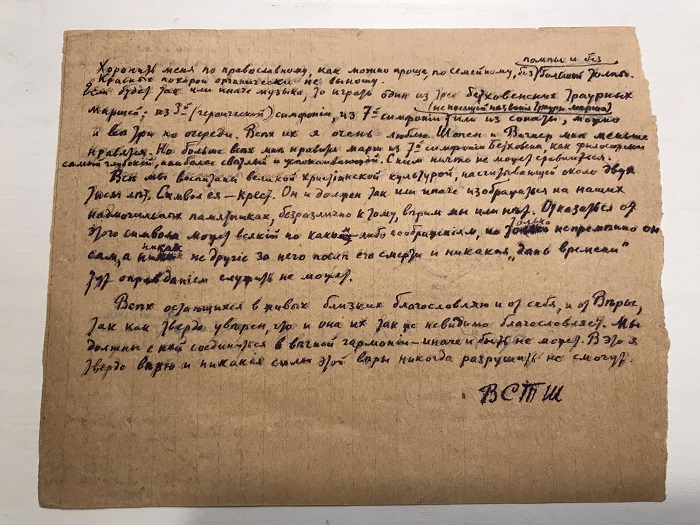 помпы и без
Хоронить меня по православному, как можно проще, по семейному, без большой толпы.
Красных похорон органически не выношу.
Если будет так или иначе музыка, то играть один из трех бетховенских траурных
(не носящей названия траурн. марша)
маршей: из 3й (героической) симфонии, из 7й симфонии или из сонаты, можно
и все три по очереди. Всѣ их я очень люблю. Шопен и Вагнер мнѣ меньше
нравятся. Но больше всѣх мнѣ нравится марш из 7й симфонии Бетховена, как философски
самый глубокий, наиболее светлый и успокаивающий. С ним ничто не может сравниться.
Всѣ мы воспитаны великой христіанской культурой, насчитывающей около двух
тысяч лѣт. Символ ея – крест. Он и должен так или иначе изображаться на наших
надмогильных памятниках, безразлично к тому, вѣрим мы или нет. Отказаться от
этого символа может всякій по каким-либо соображеніям, но только непремѣнно он
сам, а никак не другіе за него послѣ его смерти и никакая „дань времени"
тут оправданіем служить не может.
Всѣх остающихся в живых близких благословляю и от себя, и от Вѣры,
так как твердо увѣрен, что и она их так же невидимо благословляет. Мы
должны с ней соединиться в вѣчной гармонии – иначе и быть не может. В это я
твердо вѣрю и никакия силы этой вѣры никогда разрушить не смогут.
ВСТШ